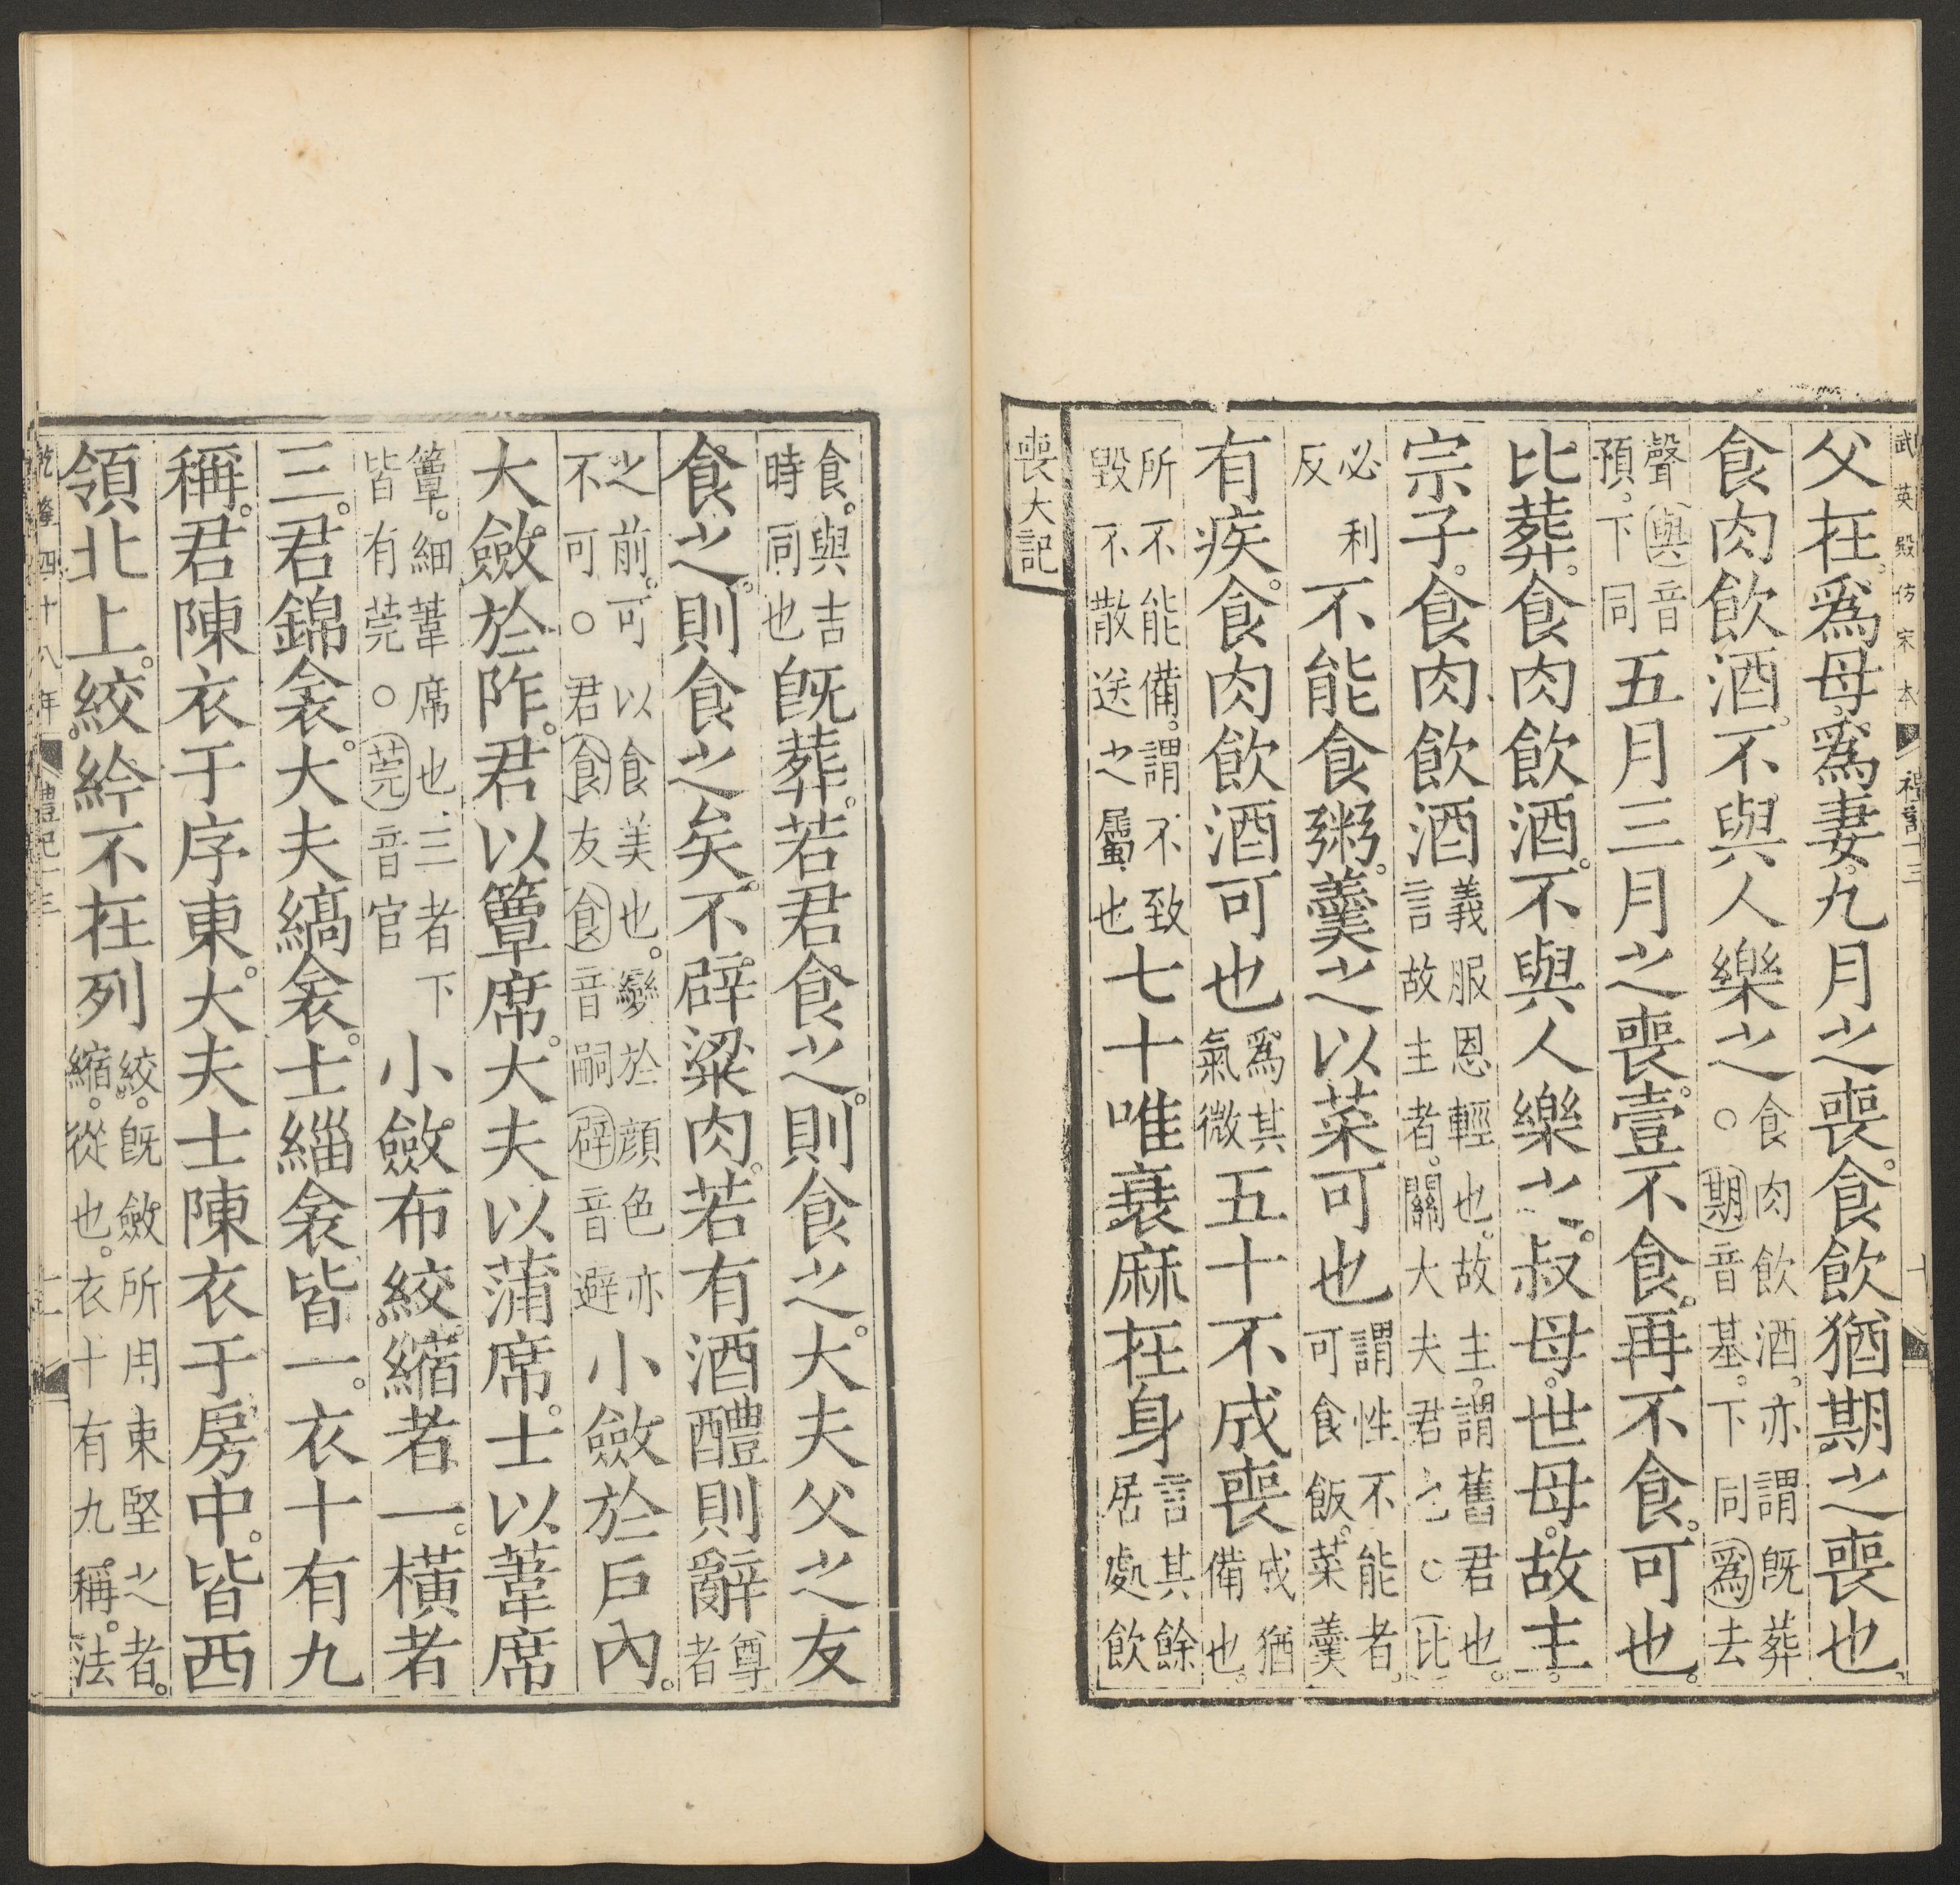 武英殿仿宋本
禮記十三
父在。爲母。爲妻。九月之喪。食飲猶期之喪也。
食肉飲酒。不與人樂之。食肉飲酒。亦謂既葬○期音基。下同爲去
聲與音預。下同五月三月之喪。壹不食。再不食。可也。
比葬。食肉飲酒。不與人樂之。叔母。世母。故主。
宗子。食肉飲酒義服恩輕也。故主。謂舊君也。言故主者。關大夫君也○比
必利反不能食粥。羹之以菜可也謂性不能者。可食飯。菜羹
有疾。食肉飲酒可也爲其氣微五十不成喪成猶備也。
所不能備。謂不致毀不散送之屬也七十唯衰麻在身言其餘居處飲
喪大記
食。與吉時同也既葬。若君食之。則食之。大夫父之友
食之。則食之矣。不辟粱肉。若有酒醴則辭尊者
之前。可以食美也。變於顏色亦不可○君食友食音嗣辟音避小斂於戶內。
大斂於阼。君以簟席。大夫以蒲席。士以葦席
簟。細葦席也、三者下皆有莞○莞音官小斂布絞。縮者一。橫者
三。君錦衾。大夫縞衾。士緇衾。皆一。衣十有九
稱。君陳衣于序東。大夫士陳衣于房中。皆西
領北上。絞。紟不在列絞。既斂所用束堅之者。縮。從也。衣十有九稱。法
乾隆四十八年
禮記十三